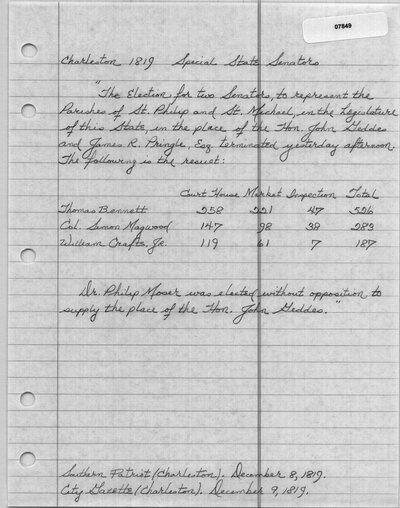 07849
Charleston 1819 Special State Senators
"The Election for two Senators, to represent the
Parishes of St. Philip and St. Michael, in the Legislature
of this State, in the place of the Hon. John Geddes
and James R. Pringle, Esq. terminated yesterday afternoon.
The following is the result:
Court House Market Inspection Total
Thomas Bennett 258 221 47 526
Col. Simon Magwood 147 98 38 283
William Crafts, Jr. 119 61 7 187
Dr. Philip Moser was elected without opposition to
supply the place of the Hon. John Geddes."
Southern Patriot (Charleston). December 8, 1819.
City Gazette (Charleston). December 9, 1819.